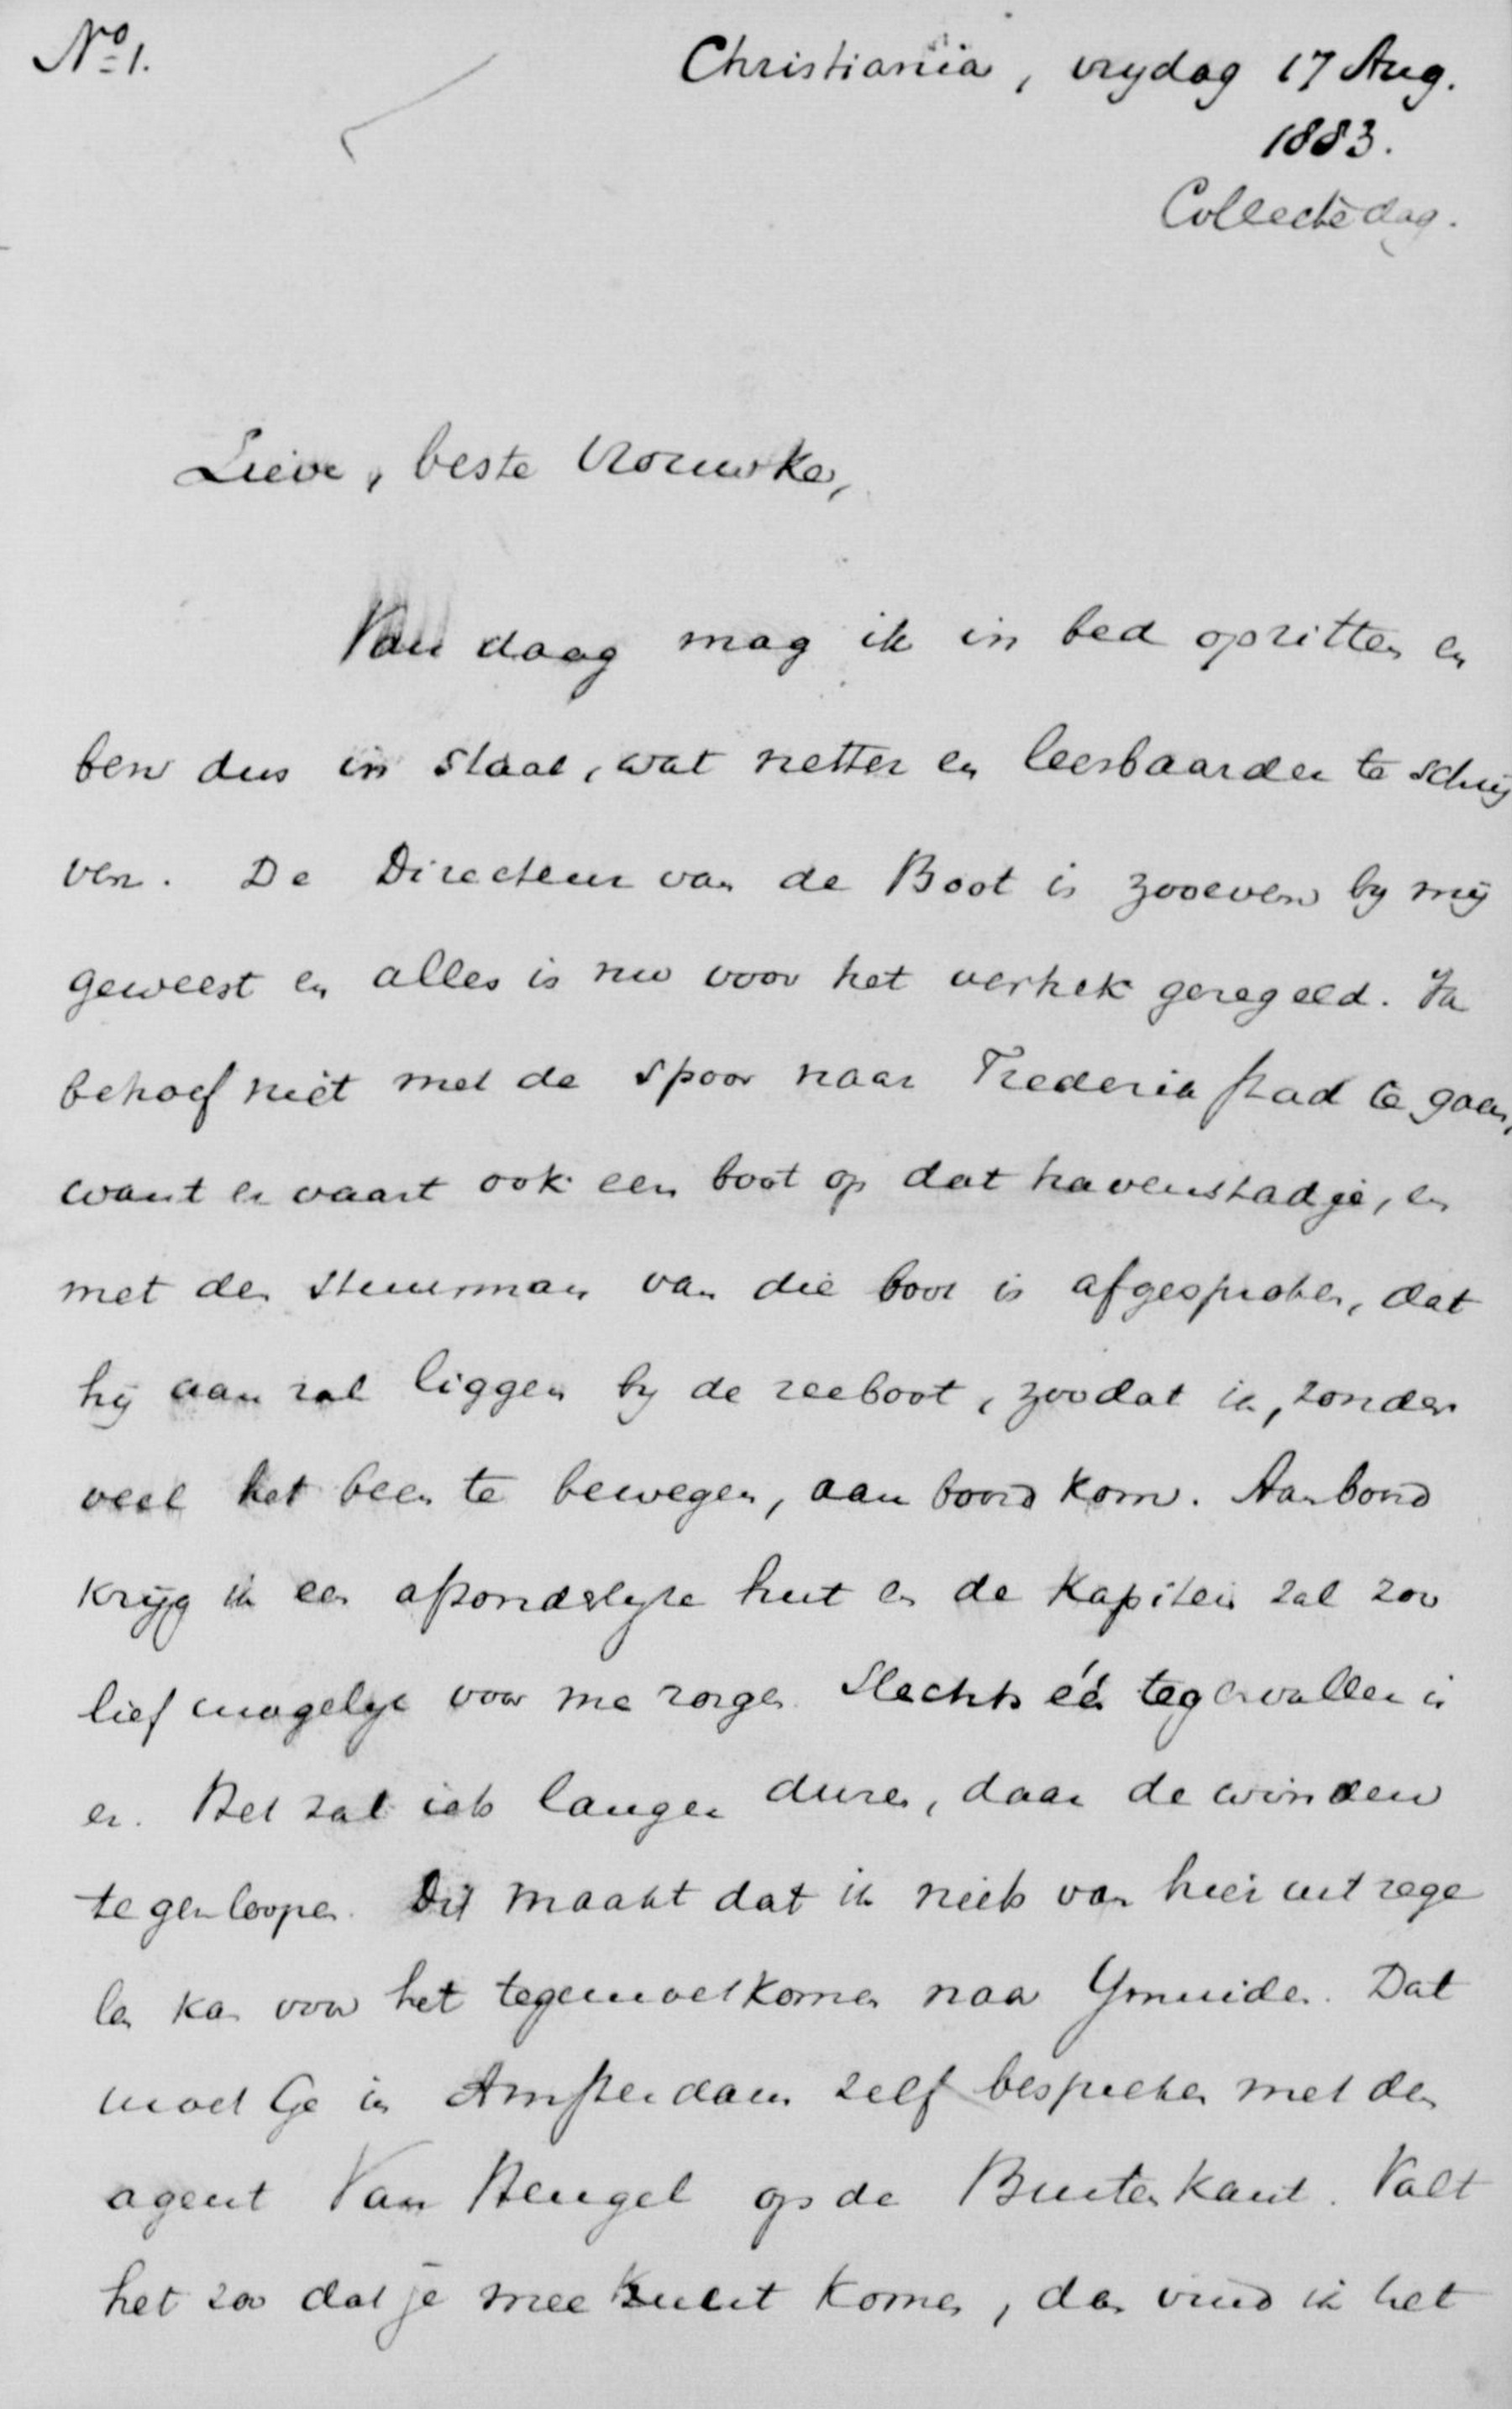 No 1.
Christiania, vrijdag 17 Aug.
1883.
Collectedag.
Lieve, beste vrouwke,
Van daag mag ik in bed opzitten en
ben dus in staat, wat netter en leesbaarder te schrij
ven. De Directeur van de Boot is zooeven bij mij
geweest en alles is nu voor het vertrek geregeld. Ik
behoef niet met de spoor naar Frederikstad te gaan,
want er vaart ook een boot op dat havenstadje, en
met den stuurman van die boot is afgesproken, dat
hij aan zal liggen bij de zeeboot, zoodat ik, zonder
veel het been te bewegen, aan boord kom. Aan boord
krijg ik een afzonderlijke hut en de kapitein zal zoo
lief mogelijk voor me zorgen. Slechts één tegenvaller is
er. Het zal iets langer duren, daar de winden
tegenloopen. Dit maakt dat ik niets van hier uit rege
len kan voor het tegemoetkomen naar Ymuiden. Dat
moet Ge in Amsterdam zelf bespreken met den
agent Van Hengel op de Buitenkant. Valt
het zoo dat je mee kunt komen, dan vind ik het